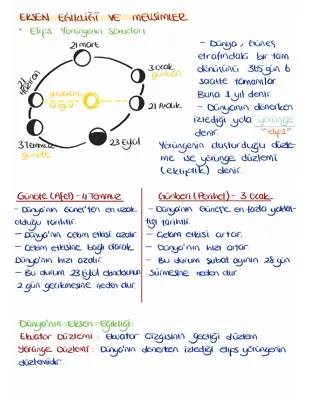 EKSEN EĞİKLİĞİ VE MEVSİMLER
* Elips Yörüngenin sonuçları
21 mart
3 Ocak
günberi
21 Haziran
günberi
21 Aralık
3 Temmuz
günöte
23 Eylül
- Dünya, Güneş
etrafındaki bir tam
dönüşünü 365 gün 6
saatte tamamlar.
Buna 1 yıl denir.
- Dünyanın dönerken
izlediği yola yörünge
denir. "elips"
Yörüngenin oluşturduğu düzle-
me ise yörünge düzlemi
(ekliptik) denir.
Günöte (Afel) - 4 Temmuz
- Dünya'nın Güneş'ten en uzak
olduğu tarihtir.
- Dünya'nın çekim etkisi azalır.
- Çekim etkisine bağlı olarak
Dünya'nın hızı azalır.
- Bu durum 23 Eylül ekinoksunun
2 gün gecikmesine neden olur.
Günberi (Perihel) - 3 Ocak
- Dünya'nın Güneş'e en fazla yaklaş-
tığı tarihtir.
- Çekim etkisi artar.
- Dünya'nın hızı artar.
- Bu durum şubat ayının 28 gün
sürmesine neden olur.
Dünya'nın Eksen Eğikliği:
Ekvator Düzlemi: Ekvator Çizgisinin geçtiği düzlem
Yörünge Düzlemi: Dünya'nın dönerken izlediği elips yörüngenin
düzlemidir.